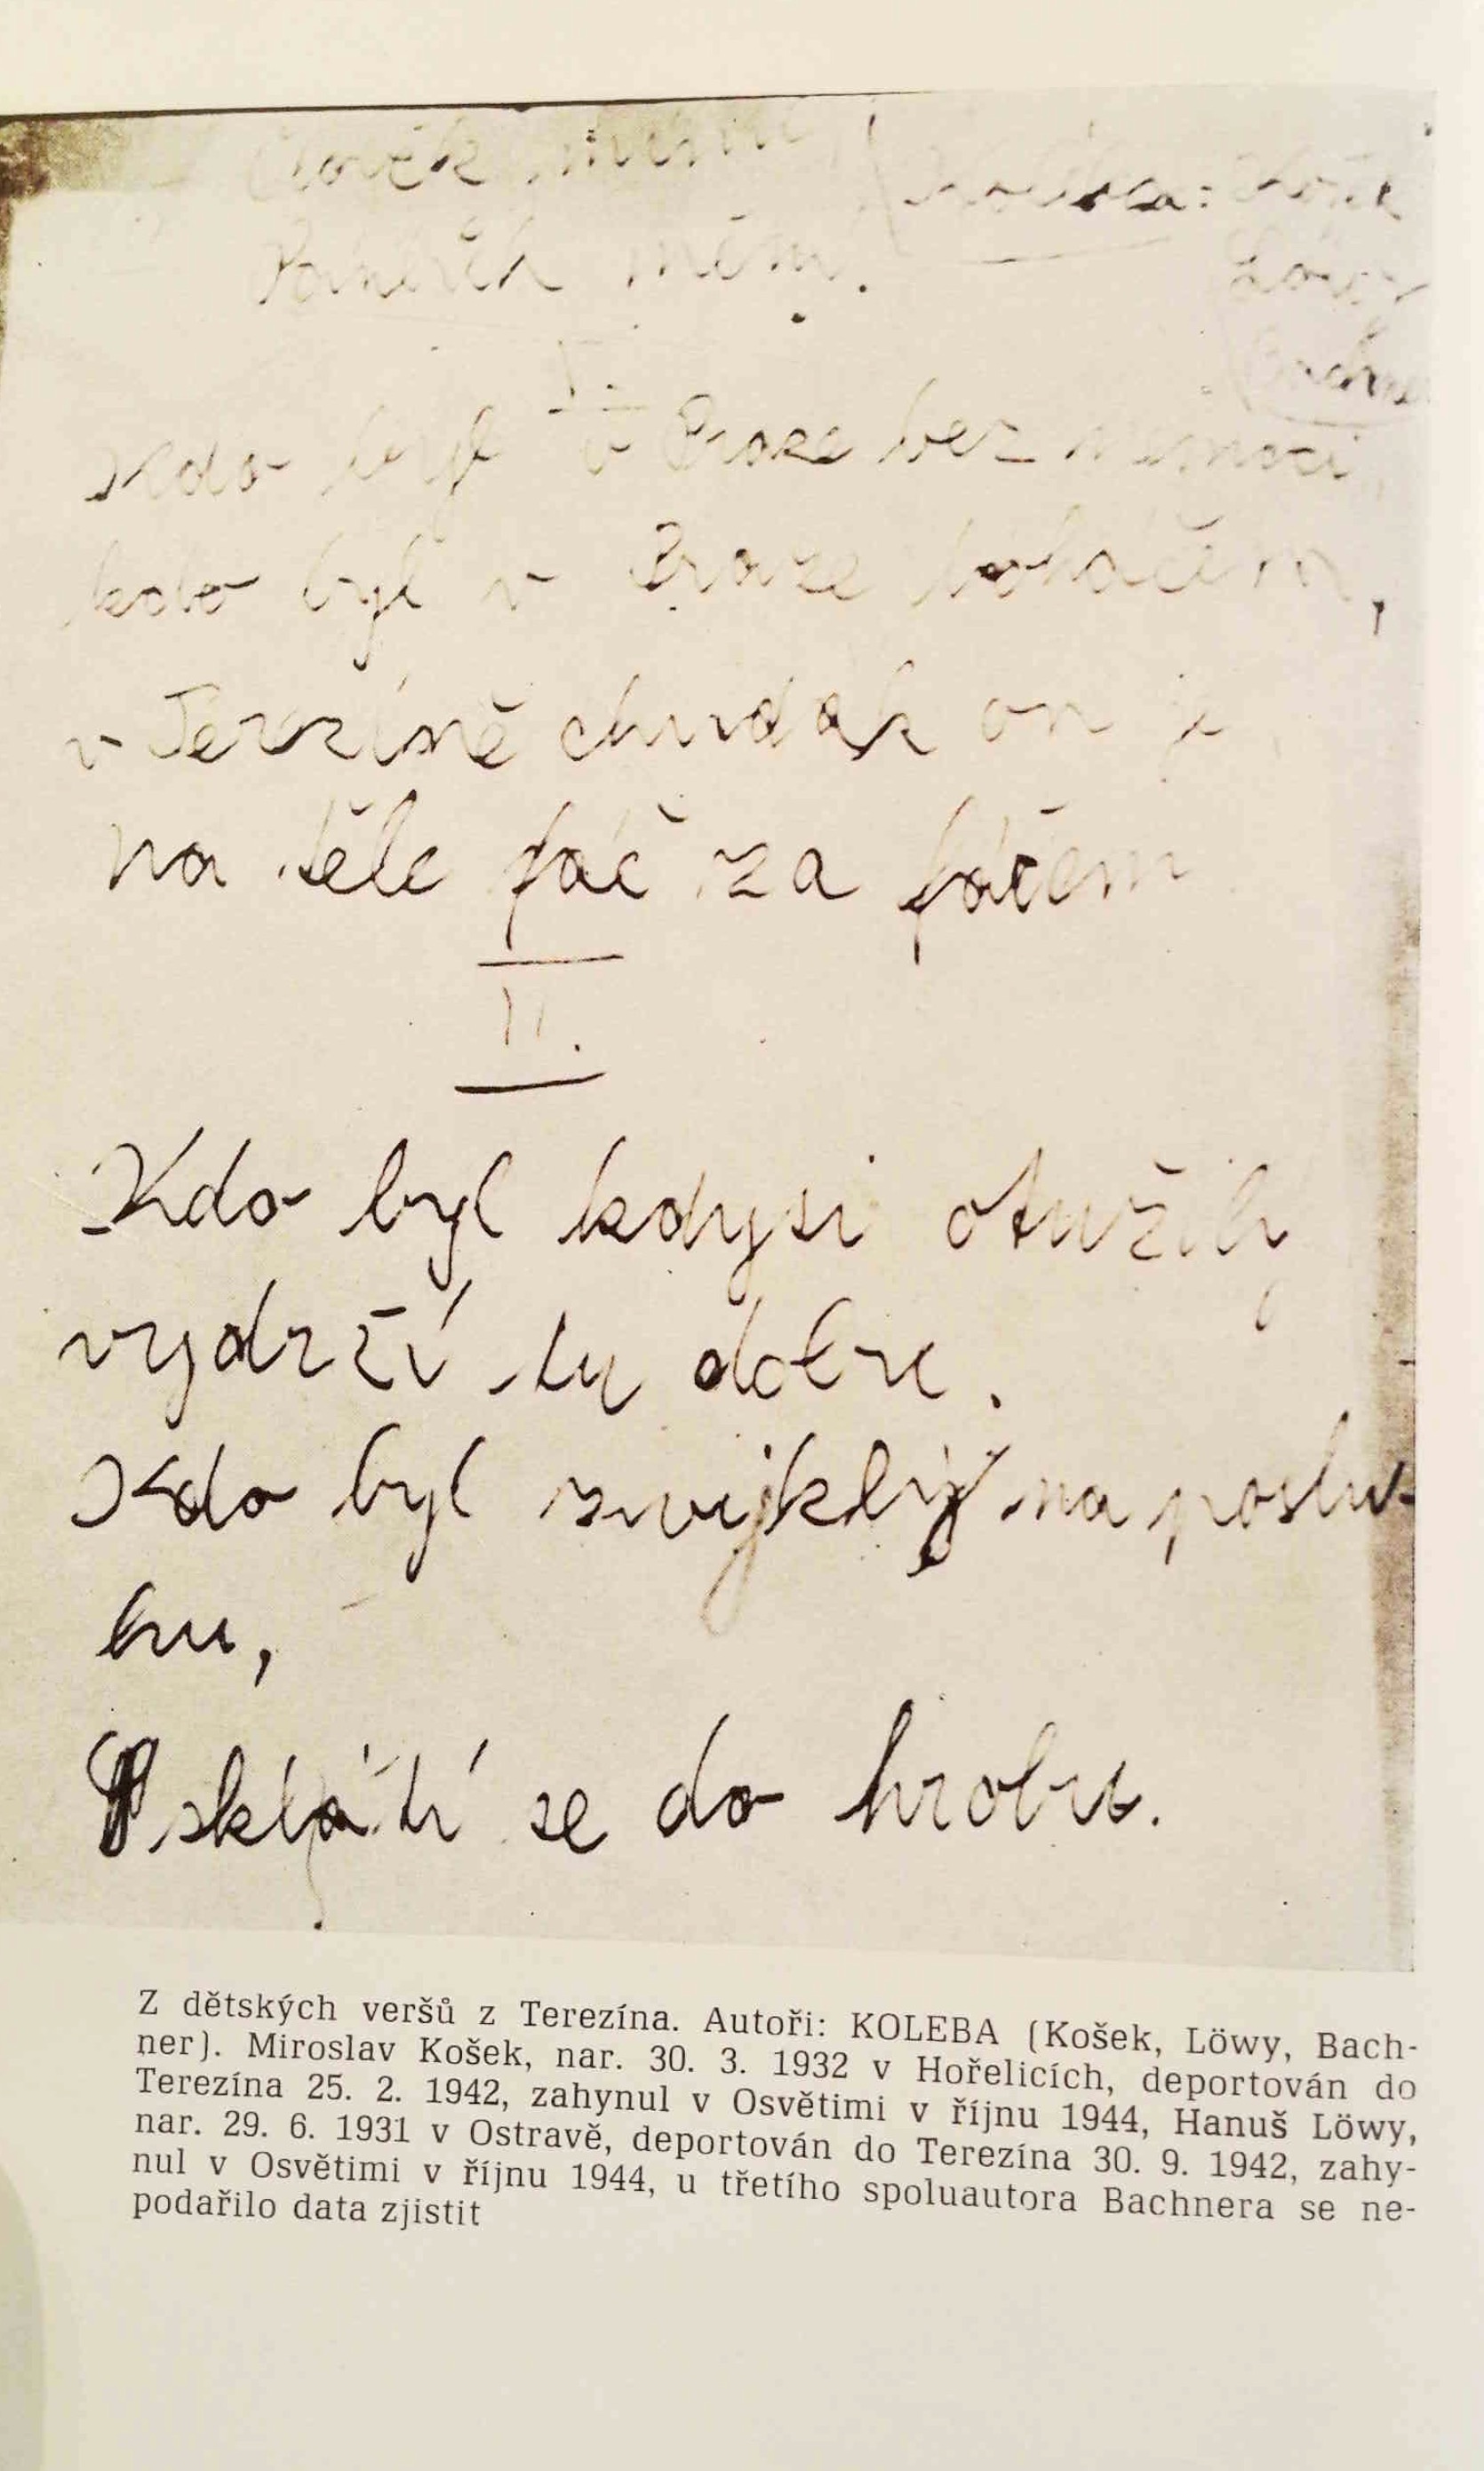 Člověk
Pohled měny.
Koleba: Košek
Löwy
Bachner
I.
Kdo byl v Praze bez nemoci,
kdo byl v Praze boháčem,
v Terezíně chudák on je
na těle fáč za fáčem
II.
Kdo byl kdysi otužilý
vydrží tu dobře.
Kdo byl zvyjklý na poslu-
hu,
skláti se do hrobu.
Z dětských veršů z Terezína. Autoři: KOLEBA (Košek, Löwy, Bach-
ner). Miroslav Košek, nar. 30. 3. 1932 v Hořelicích, deportován do
Terezína 25. 2. 1942, zahynul v Osvětimi v říjnu 1944, Hanuš Löwy,
nar. 29. 6. 1931 v Ostravě, deportován do Terezína 30. 9. 1942, zahy-
nul v Osvětimi v říjnu 1944, u třetího spoluautora Bachnera se ne-
podařilo data zjistit